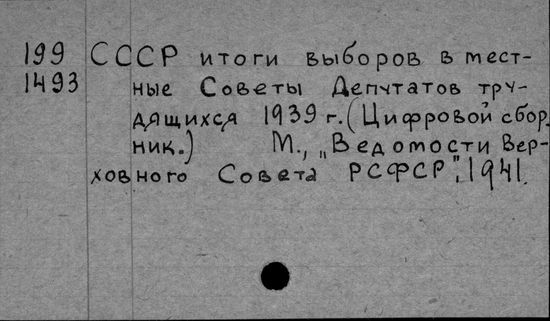 199 СССР итоги выборов в мест-
1493 ные Советы Депутатов тру-
дящихся 1939 г. (Цифровой сбор.
ник.) М., „Ведомости Вер-
ховного Совета РСФСР", 1941.